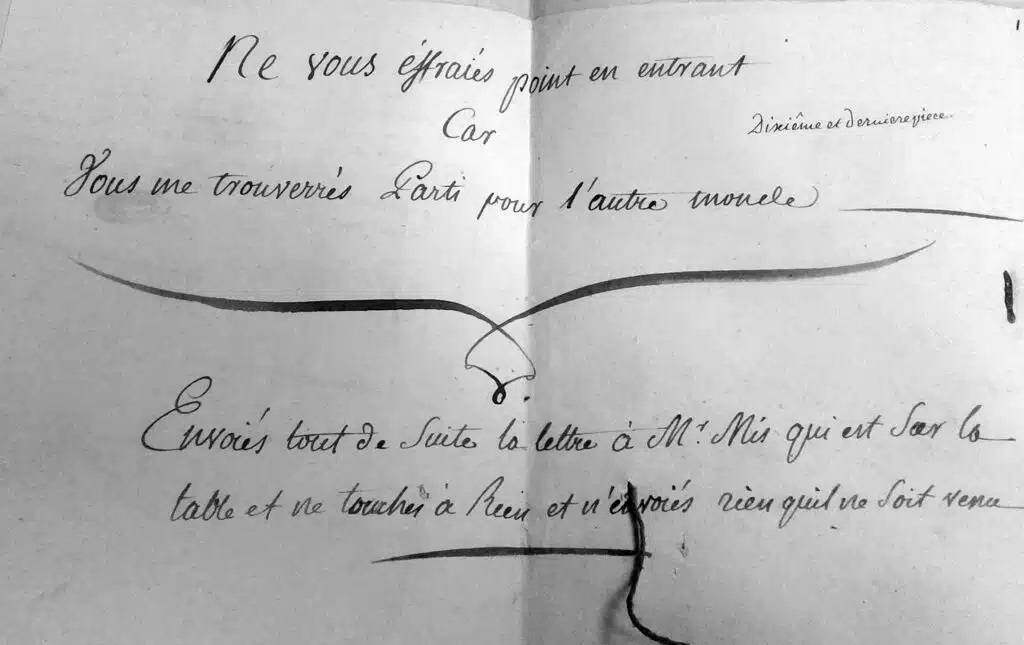 Ne vous éffraiés point en entrant
Car
Dixiême et derniere piece.
Vous me trouverrés Parti pour l'autre monde
Envoiés tout de Suite la lettre à Mr Mis qui est Sur la
table et ne touchés à Rien et n'envoiés rien quil ne Soit venu